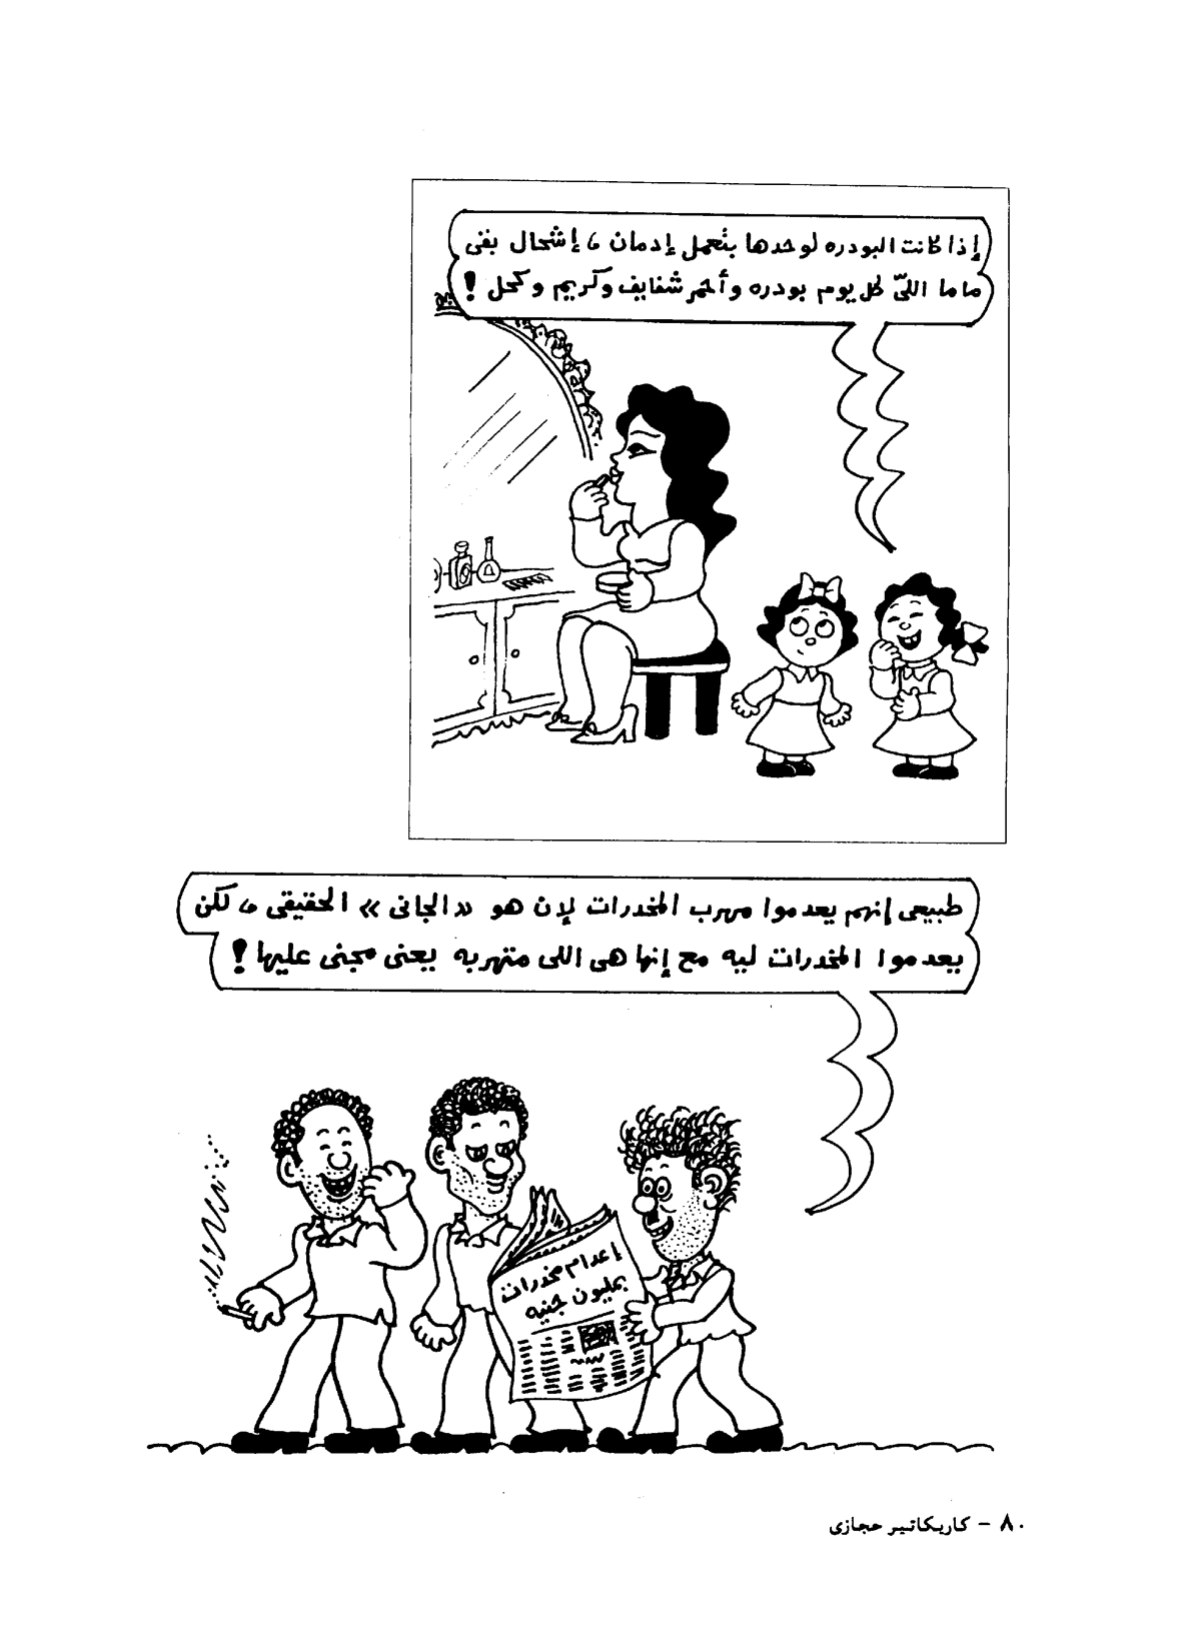 إذا كانت البودره لوحدها بتعمل إدمان ، إشحال بقى
ماما اللىّ كل يوم بودره وأحمر شفايف وكريم وكحل !
طبيعى إنهم يعدموا مهرب المخدرات لإن هو «الجانى» الحقيقى ، لكن
يعدموا المخدرات ليه مع إنها هى اللى متهربه يعنى مجنى عليها !
إعدام مخدرات
بمليون جنيه
٨٠ - كاريكاتير حجازى